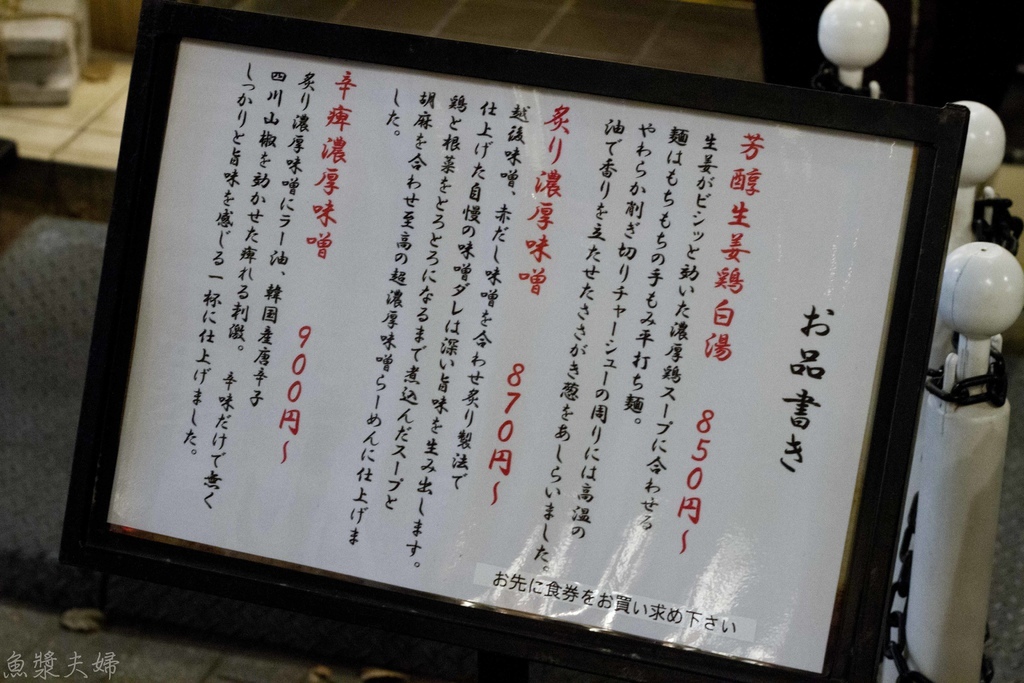 お品書き
芳醇生姜鶏白湯 850円～
生姜がビシッと効いた濃厚鶏スープに合わせる
麺はもちもちの手もみ平打ち麺。
やわらか削ぎ切りチャーシューの周りには高温の
油で香りを立たせたささがき葱をあしらいました。
炙り濃厚味噌 870円～
越後味噌、赤だし味噌を合わせ炙り製法で
仕上げた自慢の味噌ダレは深い旨味を生み出します。
鶏と根菜をとろとろになるまで煮込んだスープと
胡麻を合わせ至高の超濃厚味噌らーめんに仕上げま
した。
辛痺濃厚味噌 900円～
炙り濃厚味噌にラー油、韓国産唐辛子
四川山椒を効かせた痺れる刺激。 辛味だけで無く
しっかりと旨味を感じる一杯に仕上げました。
お先に食券をお買い求め下さい
魚漿夫婦